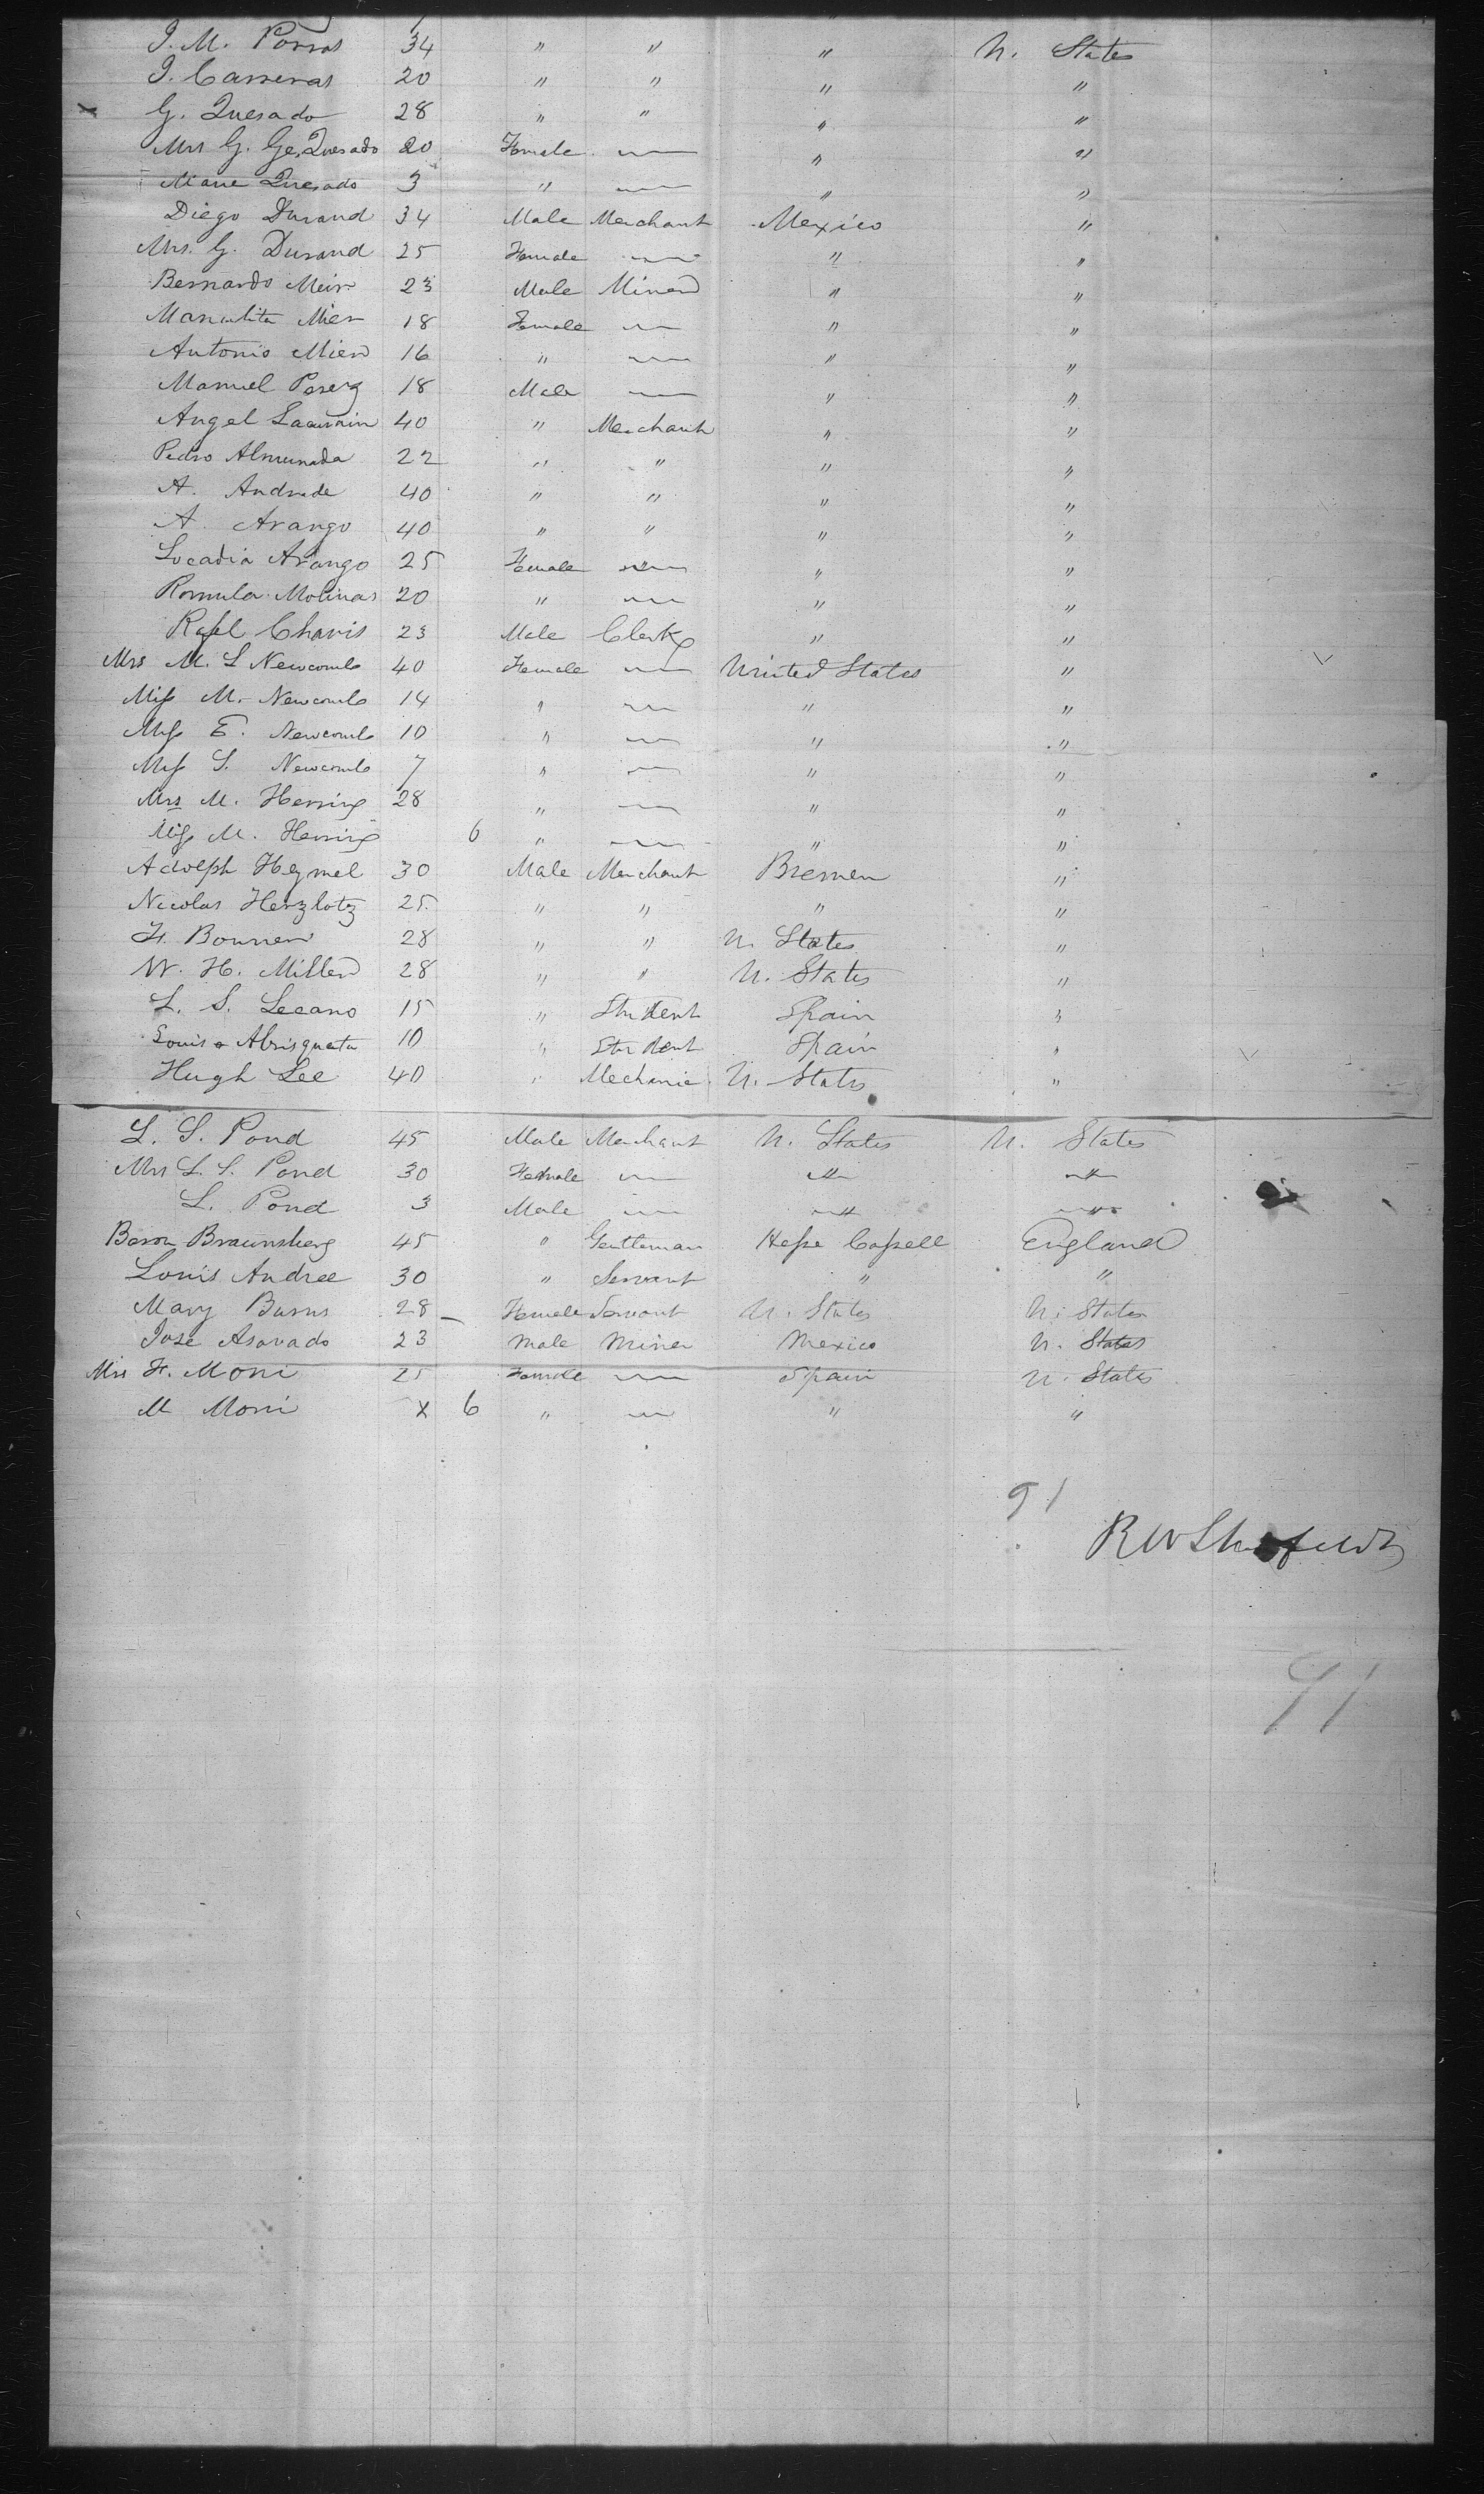 J. M. Porras 34 " " " U. States
J. Carreras 20 " " " "
G. Quesado 28 " " " "
Mrs G. Ge. Quesado 20 Female — " "
Marie Quesado 3 " — " "
Diego Durand 34 Male Merchant Mexico "
Mrs. G. Durand 25 Female — " "
Bernardo Meir 23 Male Miner " "
Manulita Mier 18 Female — " "
Antonio Mier 16 " — " "
Manuel Perez 18 Male — " "
Angel 40 " Merchant " "
Pedro Almunada 22 " " " "
A. Andrade 40 " " " "
A. Arango 40 " " " "
Locadia Arango 25 Female — " "
Romula Molinas 20 " — " "
Rafel Chavis 23 Male Clerk " "
Mrs M. L Newcomb 40 Female — United States "
Miss M. Newcomb 14 " — " "
Miss E. Newcomb 10 " — " "
Miss S. Newcomb 7 " — " "
Mrs M. Herring 28 " — " "
Miss M. Herring 6 " — " "
Adolph Heymel 30 Male Merchant Bremen "
Nicolas Herzlotz 25 " " " "
H. Bourren 28 " " U. States "
W. H. Miller 28 " " U. States "
L. S. Lecano 15 " Student Spain "
Louis Abrisqueta 10 " Student Spain "
Hugh Lee 40 " Mechanic U. States "
L. S. Pond 45 Male Merchant U. States U. States
Mrs L. S. Pond 30 Female — " "
L. Pond 3 Male — " "
Baron Braunsberg 45 " Gentleman Hesse Cassell England
Louis Andree 30 " Servant " "
Mary Burns 28 Female Servant U. States U. States
Jose Asavado 23 Male Miner Mexico U. States
Mrs F. Moni 25 Female — Spain U. States
M Moni X 6 " — " "
91
R W Shufeldt
91